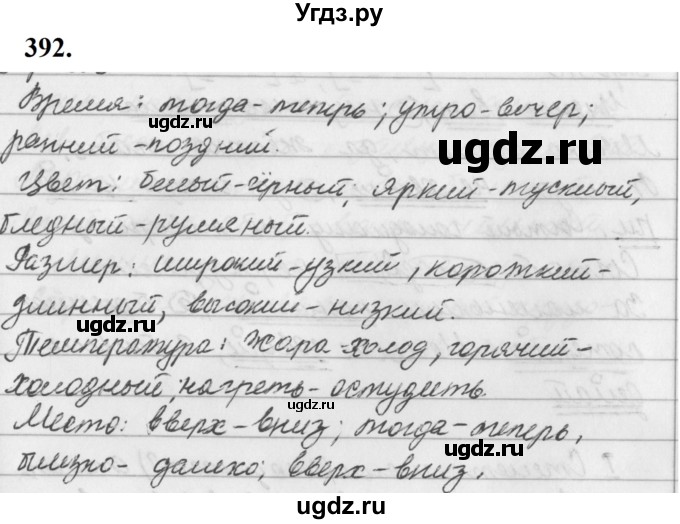 Угдз.ру
392.
Время: тогда-теперь; утро-вечер;
ранний-поздний.
Цвет: белый-чёрный, яркий-тусклый,
бледный-румяный.
Размер: широкий-узкий, короткий-
длинный, высокий-низкий.
Температура: жара-холод, горячий-
холодный, нагреть-остудить.
Место: вверх-вниз; тогда-теперь,
близко-далеко; вверх-вниз.
ugdz.ru
ugdz.ru
ugdz.ru
ugdz.ru
ugdz.ru
ugdz.ru
ugdz.ru
ugdz.ru
ugdz.ru